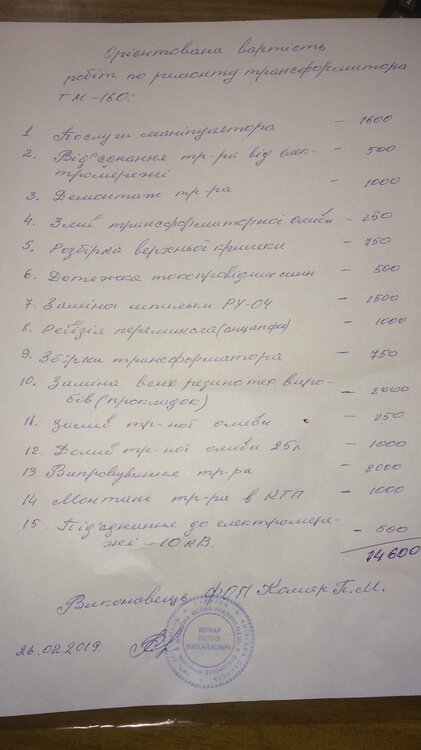 Орієнтована вартість
робіт по ремонту трансформатора
ТМ-160:
1. Послуги маніпулятора - 1600
2. Від'єднання тр-ра від елек-
тромережі - 500
3. Демонтаж тр-ра - 1000
4. Злив трансформаторної оливи - 250
5. Розбірка верхньої кришки - 750
6. Дотяжка токопровідних шин - 500
7. Заміна шпильки РУ-04 - 1500
8. Ревізія перемикача (анцапфи) - 1000
9. Збірка трансформатора - 750
10. Заміна всіх резинотех. виро-
бів (прокладок) - 2000
11. Залив тр-ної оливи - 250
12. Долив тр-ної оливи 25л - 1000
13. Випробування тр-ра - 2000
14 Монтаж тр-ра в КТП - 1000
15 Під'єднання до електромере-
жі - 10 кВ. - 500
14600
Виконавець ФОП Комар П.М.
26.02.2019.
КОМАР
ПЕТРО
МИХАЙЛОВИЧ